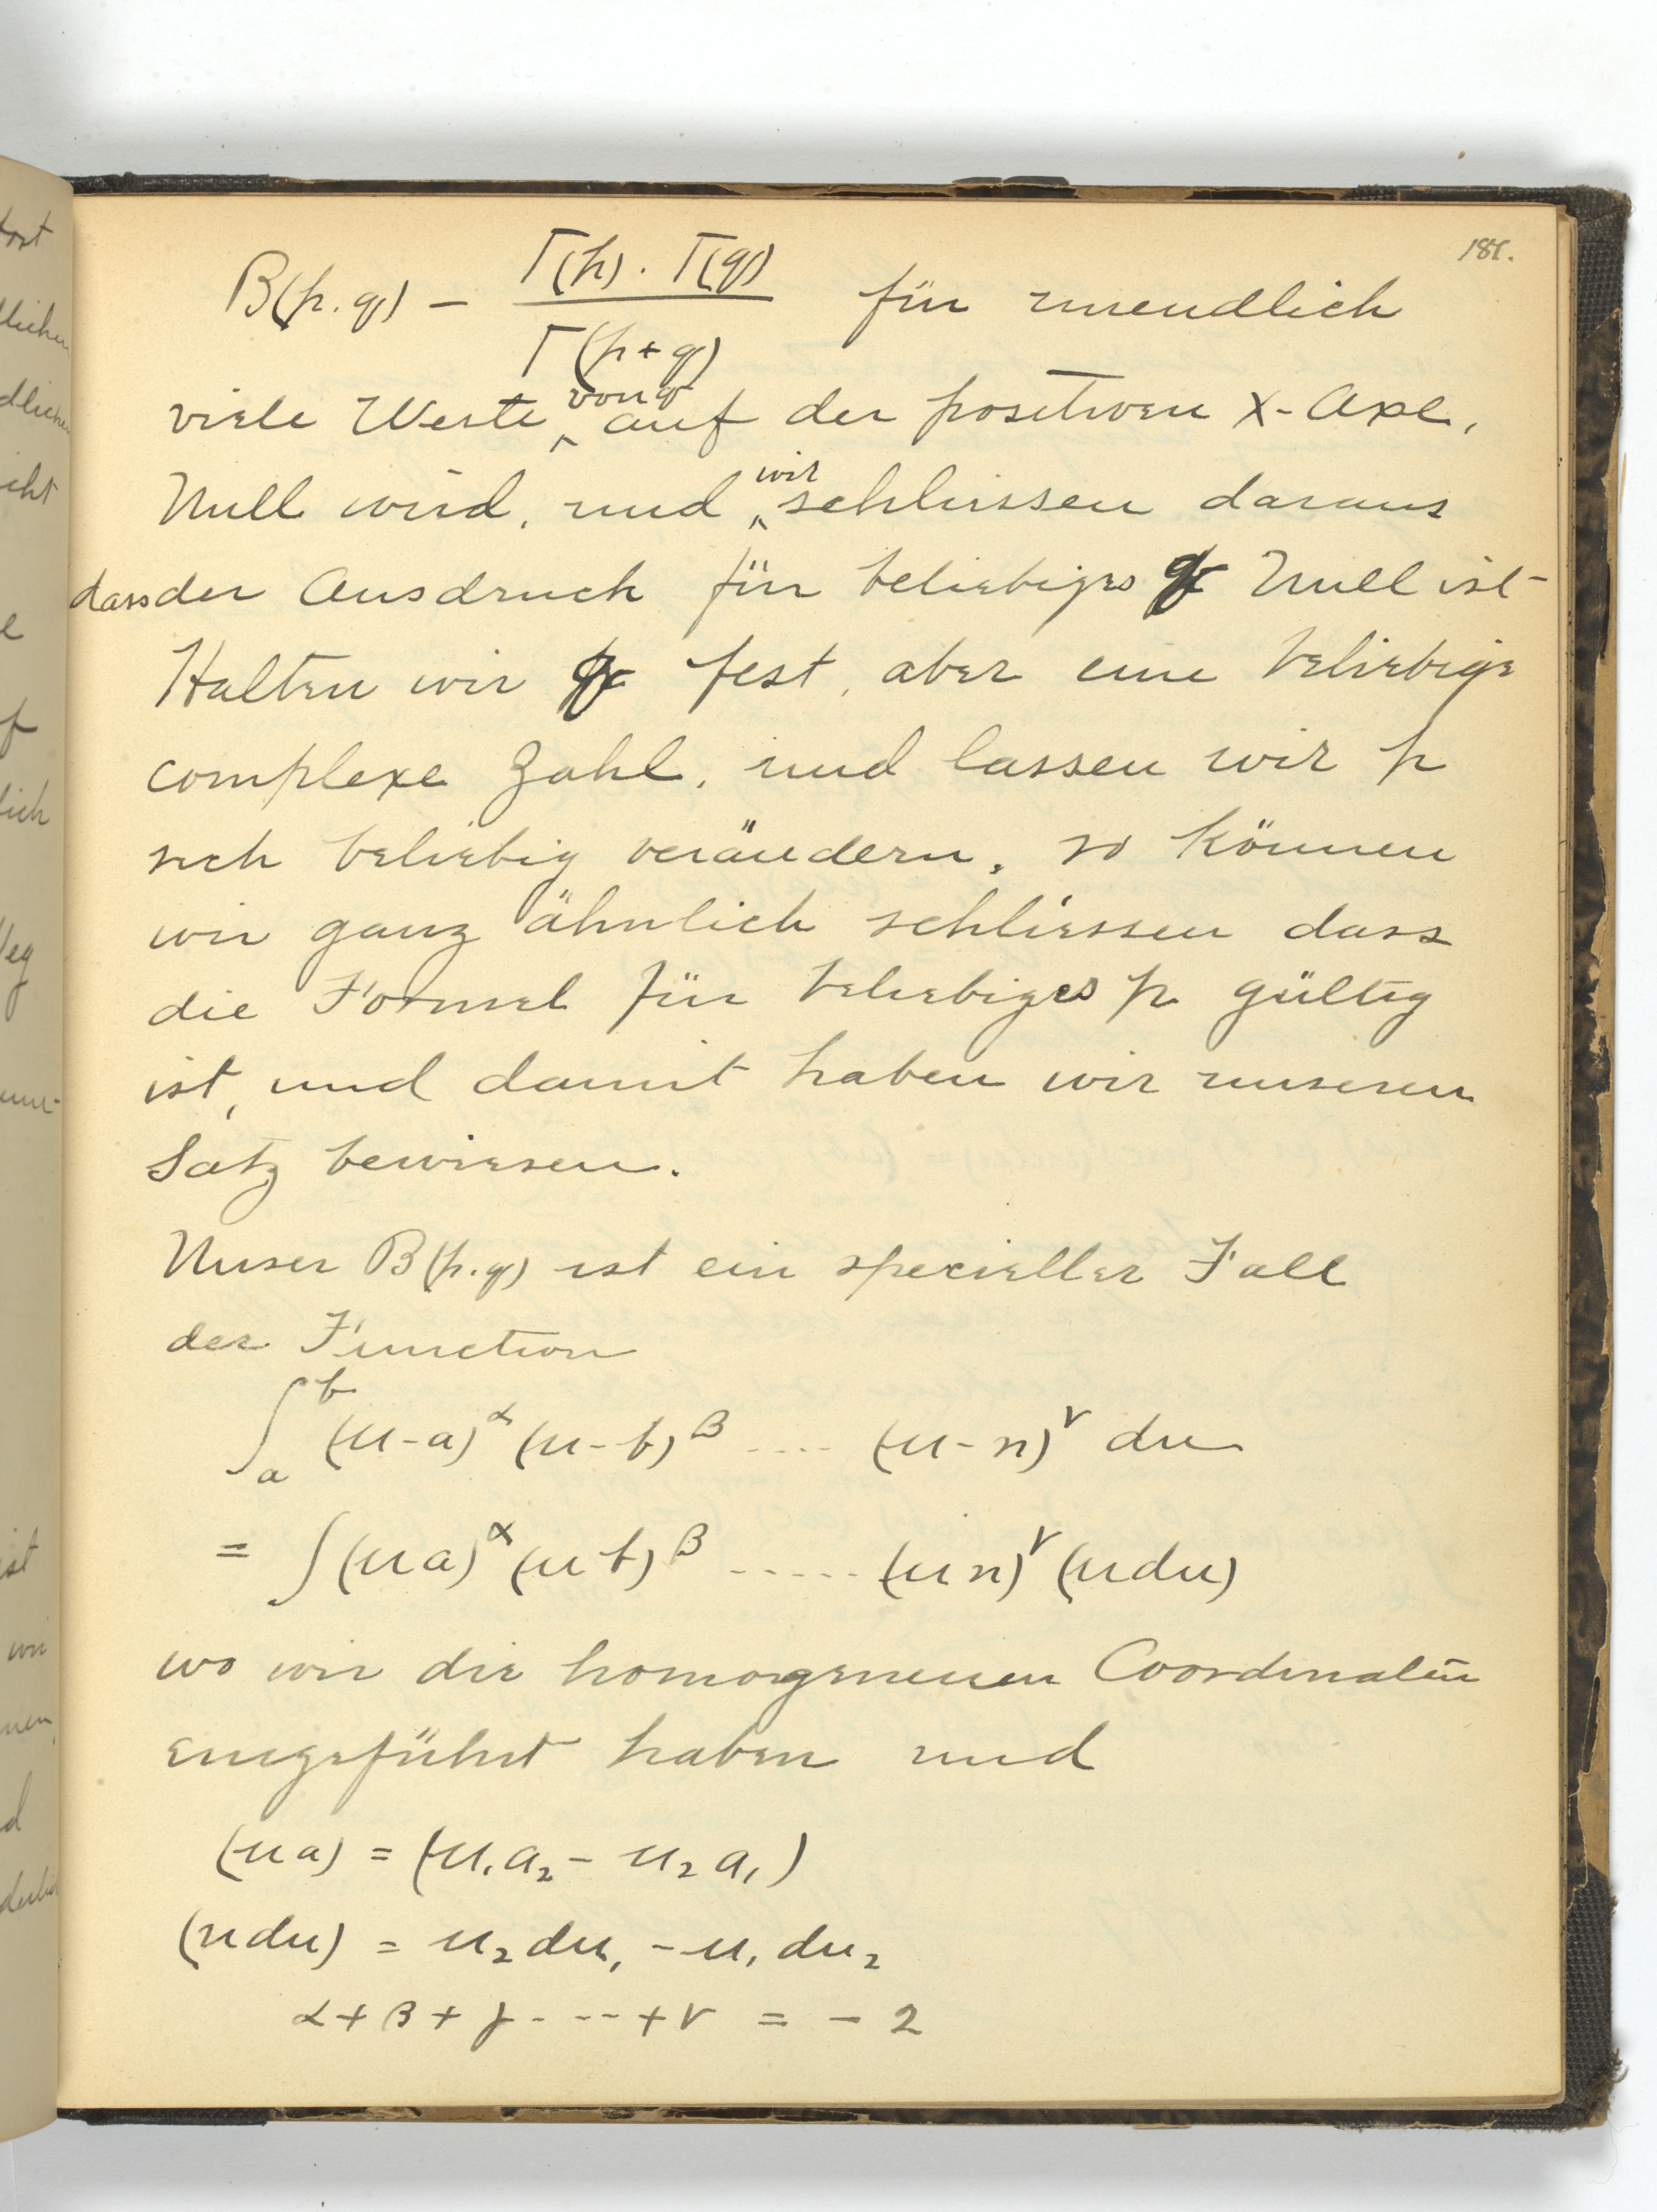 181.
B(p.q) - Γ(p) . Γ(q) / Γ(p+q) für unendlich
viele Werte von q auf der positiven X-Axe,
Null wird, und wir schliessen daraus
dass der Ausdruck für beliebiges q Null ist
Halten wir q fest, aber eine beliebige
complexe Zahl, und lassen wir p
sich beliebig verändern, so können
wir ganz ähnlich schliessen dass
die Formel für beliebiges p gültig
ist, und damit haben wir unseren
Satz bewiesen.
Unser B(p.q) ist ein specieller Fall
der Function
∫ₐᵇ (u-a)^α (u-b)^β .... (u-n)^ν du
= ∫(ua)^α (ub)^β ..... (un)^ν (udu)
wo wir die homogeneuen Coordinaten
eingeführt haben und
(ua) = (u₁a₂ - u₂a₁)
(udu) = u₂du₁ - u₁du₂
α + β + γ - -- + ν = - 2